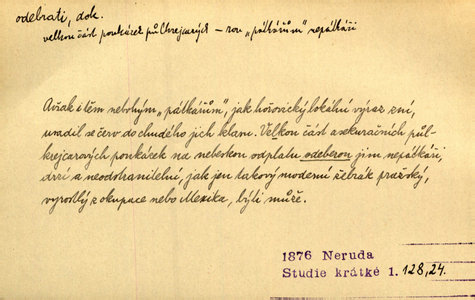 odebrati, dok.
velkou část poukázek půlkrejcarových – jim „pátkářům" nepátkáři
Avšak i těm nebohým „pátkářům", jak hořovický lokální výraz zní,
vradil se červ do chudého jich klanu. Velkou část asekuračních půl-
krejcarových poukázek na nebeskou odplatu odeberou jim nepátkáři,
drzí a neodstranitelní, jak jen takový moderní žebrák pražský,
vyrostlý z okupace nebo Mexika, býti může.
1876 Neruda
Studie krátké 1. 128,24.